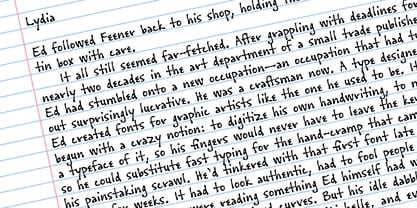 Lydia
Ed followed Feener back to his shop, holding
tin box with care.
It all still seemed far-fetched. After grappling with deadlines fo
nearly two decades in the art department of a small trade publishe
Ed had stumbled onto a new occupation—an occupation that had t
out surprisingly lucrative. He was a craftsman now. A type design
Ed created fonts for graphic artists like the one he used to be. H
begun with a crazy notion: to digitize his own handwriting, to m
a typeface of it, so his fingers would never have to leave the k
so he could substitute fast typing for the hand-cramp that cam
his painstaking scrawl. He'd tinkered with that first font late
for weeks. It had to look authentic, had to fool people
were reading something Ed himself had w
curves. But his idle dabbl
belle, and ev